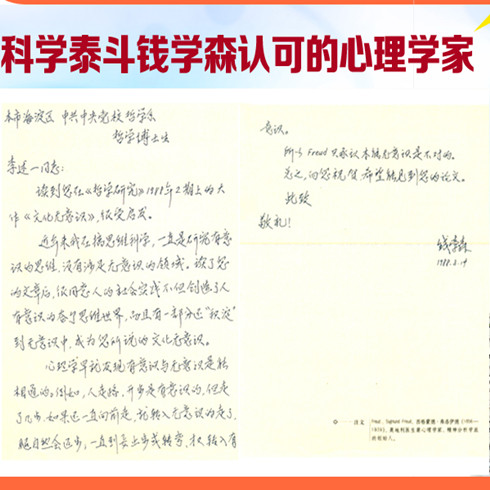 科学泰斗钱学森认可的心理学家
本市海淀区 中共中央党校 哲学系
哲学博士生
李述一同志：
读到您在《哲学研究》1988年2期上的大
作《文化无意识》，很受启发。
近年来我在搞思维科学，一直是研究有意
识的思维，没有涉足无意识的领域。读了您
的文章后，很同意人的社会实践不但创造了人
有意识的奇尔思维世界，而且有一部分还“积淀”
到无意识中，成为您所说的文化无意识。
心理学早就发现有意识与无意识是能
相通的。例如，人走路，开步是有意识的，但走
了几步，如果还一直向前走，就转入无意识的走了，
腿自然会迈步，一直到要止步或转弯，才又转入有
意识。
所以Freud只承认本能无意识是不对的。
总之，向您祝贺，希望能见到您的论文。
此致
敬礼！
钱学森
1988.3.19
注文
Freud, Sigmund Freud, 西格蒙德·弗洛伊德（1856—
1939），奥地利医生兼心理学家、精神分析学派
的创始人。